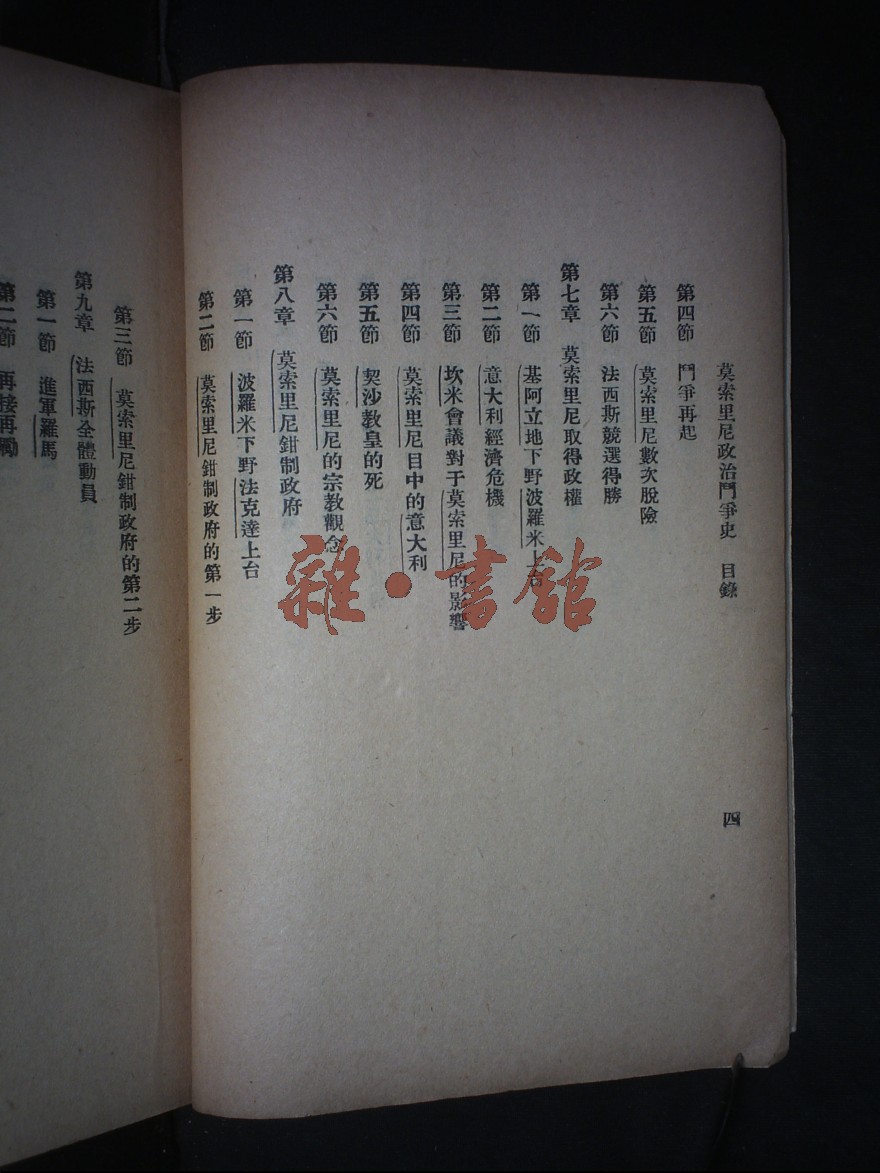 莫索里尼政治鬥爭史　目錄
四
第四節　鬥爭再起
第五節　莫索里尼數次脫險
第六節　法西斯競選得勝
第七章　莫索里尼取得政權
第一節　基阿立地下野波羅米上台
第二節　意大利經濟危機
第三節　坎米會議對于莫索里尼的影響
第四節　莫索里尼目中的意大利
第五節　契沙教皇的死
第六節　莫索里尼的宗教觀念
第八章　莫索里尼鉗制政府
第一節　波羅米下野法克達上台
第二節　莫索里尼鉗制政府的第一步
第三節　莫索里尼鉗制政府的第二步
第九章　法西斯全體動員
第一節　進軍羅馬
第二節　再接再勵
雜·書館